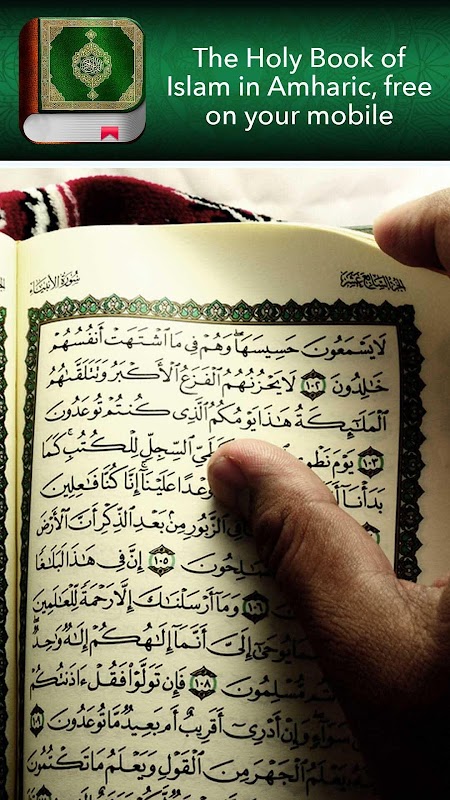 The Holy Book of
Islam in Amharic, free
on your mobile
الجزء السابع عشر
سورة الأنبياء
لَا يَسْمَعُونَ حَسِيسَهَا ۖ وَهُمْ فِي مَا ٱشْتَهَتْ أَنفُسُهُمْ
خَٰلِدُونَ ١٠٢ لَا يَحْزُنُهُمُ ٱلْفَزَعُ ٱلْأَكْبَرُ وَتَتَلَقَّىٰهُمُ
ٱلْمَلَٰٓئِكَةُ هَٰذَا يَوْمُكُمُ ٱلَّذِي كُنتُمْ تُوعَدُونَ
١٠٣ يَوْمَ نَطْوِي ٱلسِّجِلِّ لِلْكُتُبِ ۚ كَمَا
بَدَأْنَآ وَعْدًا عَلَيْنَآ ۚ إِنَّا كُنَّا فَٰعِلِينَ
فِي ٱلزَّبُورِ مِنۢ بَعْدِ ٱلذِّكْرِ أَنَّ ٱلْأَرْضَ
ٱلصَّٰلِحُونَ ١٠٥ إِنَّ فِي هَٰذَا لَبَلَٰغًا
١٠٦ وَمَآ أَرْسَلْنَٰكَ إِلَّا رَحْمَةً لِّلْعَٰلَمِينَ
يُوحَىٰٓ إِلَيَّ أَنَّمَآ إِلَٰهُكُمْ إِلَٰهٌ وَٰحِدٌ
مُّسْلِمُونَ ١٠٨ فَإِن تَوَلَّوْا۟ فَقُلْ ءَاذَنتُكُمْ
سَوَآءٍ وَإِنْ أَدْرِيٓ أَقَرِيبٌ أَم بَعِيدٌ مَّا تُوعَدُونَ ١٠٩
يَعْلَمُ ٱلْجَهْرَ مِنَ ٱلْقَوْلِ وَيَعْلَمُ مَا تَكْتُمُونَ